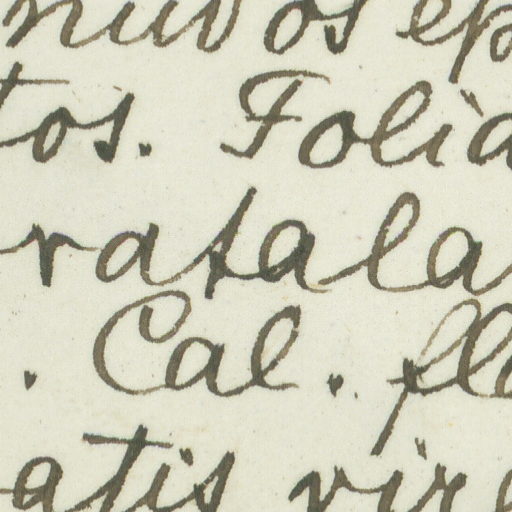 nudos ep
tos. Folia
ratala
. Cal. flo
atis vire